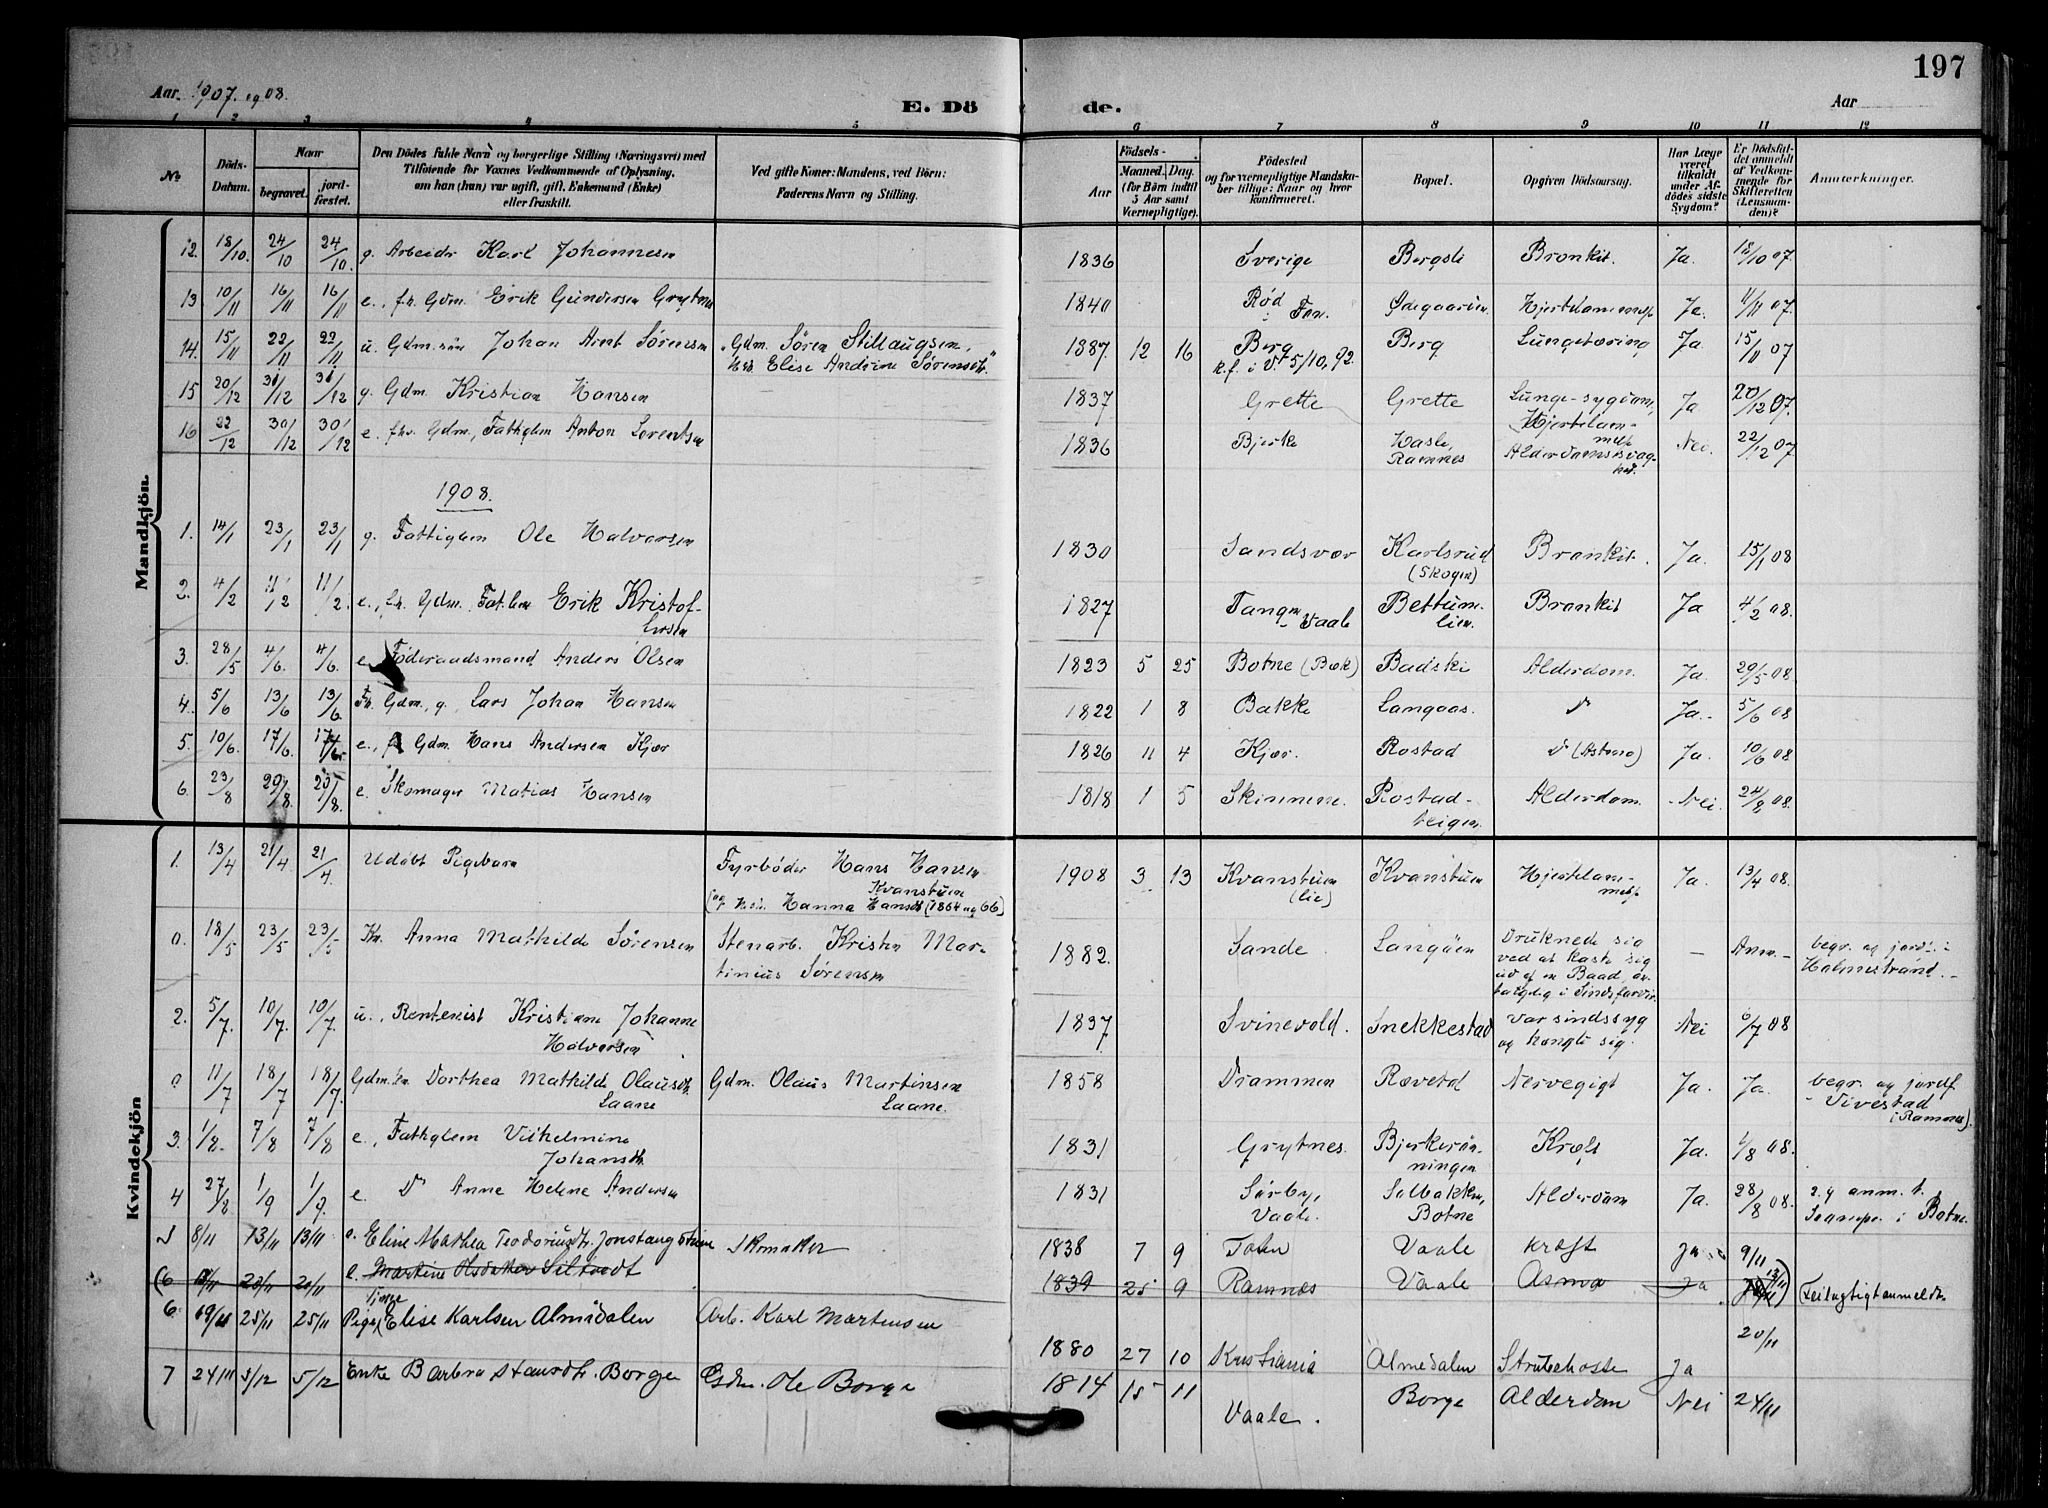 197
Aar 1907 og 08.
E. Dö de.
Aar
1 2 3 4 5 6 7 8 9 10 11 12
No
Döds-Datum.
Naar
begravet.
jord-fæstet.
Den Dödes fulde Navn og borgerlige Stilling (Næringsvei) med
Tilföiende for Voxnes Vedkommende af Oplysning,
om han (hun) var ugift, gift, Enkemand (Enke)
eller fraskilt.
Ved gifte Koner: Mandens, ved Börn:
Faderens Navn og Stilling.
Födsels-
Aar
Maaned. Dag.
(for Börn indtil
5 Aar samt
Værnepligtige).
Födested
og for værnepligtige Mandska-
ber tillige: Naar og hvor
konfirmeret.
Bopæl.
Opgiven Dödsaarsag.
Har Læge
været
tilkaldt
under Af-
dödes sidste
Sygdom?
Er Dödsfal-
det anmeldt
af Vedkom-
mende for
Skifteretten
(Lensman-
den)?
Anmærkninger.
Mandkjön.
12. 18/10. 24/10 24/10. g. Arbeider Karl Johannesen 1836 Sverige Bergsli Bronkit. Ja. 18/10 07.
13 10/11 16/11 16/11 e., fh. Gdm. Erik Gundersen Grytnes 1840 Rød i Fon. Ødegaarden. Hjertelammelse Ja. 11/11 07.
14. 15/11 22/11 22/11. u. Gdm. søn Johan Arnt Sørensen "Gdm. Søren Stillaugsen, 1887. 12 16 Berg Berg Lungetæring Ja 15/11 07
Hst. Elise Andrine Sørensdt." k.f. i V. 5/10, 92.
15 20/12 31/12 31/12 g. Gdm. Kristian Hansen 1837 Grette Grette Lunge-sygdom, Hjertelammelse Ja 20/12 07.
16 22/12 30/12 30/12 e. fhv. Gdm., Fattiglem Anton Lorentsen 1836 Bjerke Hasle, Ramnes Alderdomssvaghed. Nei. 22/12 07
1908.
1. 14/1 23/1 23/1 g. Fattiglem Ole Halvorsen 1830 Sandsvær Karlsrud (Skogen) Bronkit. Ja. 15/1 08
2. 4/2 11/2 11/2. e., fh. Gdm., Fat.lem Erik Kristof-
fersen 1827 Tangen Vaale Bettum-lien. Bronkit Ja 4/2 08.
3. 28/5 4/6. 4/6. e. Føderaadsmand Anders Olsen 1823 5 25 Botne (Bæk) Badski Alderdom. Ja. 29/5 08.
4. 5/6 13/6 13/6. Fh. Gdm., g. Lars Johan Hansen 1822 1 8 Bakke Langaas. Do Ja. 5/6 08
5. 10/6. 17/6. 17/6. e., f Gdm. Hans Andersen Kjær 1826 11 4 Kjær. Rostad Do (Astma) Ja. 10/6 08
6. 23/8 29/8. 29/8. e. Skomager Matias Hansen 1818 1 5 Skimmene. Rostad-teigen. Alderdom. Nei. 24/8 08.
Kvindekjön
1. 13/4 21/4 21/4. Udøbt Pigebarn Fyrbøder Hans Hansen Kvanstuen 1908 3 13 Kvanstuen (lie) Kvanstuen Hjertelam-melse Ja. 13/4 08.
(og H. Hanna Hansdt (1864 og 66)
0. 18/5 23/5 23/5 Kn. Anna Mathilde Sørensen Stenarb. Kristen Mar-
tinius Sørensen 1882. Sande Langøen Druknede sig
ved at kaste sig
ud af en Baad, i Sindsforvir. — Anm. begr. og jordf. i
Holmestrand.
2. 5/7. 10/7. 10/7 u., Rentenist Kristiane Johanne
Halvorsen 1837 Svinevold. Snekkestad Var sindssyg
og hængte sig. Nei 6/7 08
0 11/7 18/7 18/7. Gdm.kn. Dorthea Mathilde Olausdt.
Laane Gdm. Olaus Martinsen
Laane. 1858 Drammen Rævetd Nervegigt Ja. Ja. begr. og jordf
Vivestad
i Ramnes).
3. 1/8. 7/8 7/8 e., Fattiglem Vilhelmine
Johansdt. 1831 Grytnes. Bjerkerøn-
ningen Kræft Ja. 1/8 08.
4 27/8 1/9 1/9. e. Do Anne Helene Andersen 1831 Sørby,
Vaale. Solbakken,
Botne Alderdom Ja. 28/8 08. anm. t.
i Botne
5 8/11 13/11 13/11 e. Eline Mathea Teodoriusdt. Jonstangstuen Skomaker 1838 7 9 Tofen Vaale kræft Ja 9/11
(6 20/11 20/11 e. Martine Olsdatter 1839 25 9 Ramnæs Vaale Asma Ja 13/11) Feilagtigt anmeldt.
6. 19/11 25/11 25/11 Pige, Elise Karlsen Almidalen Arb. Karl Martensen 1880 27 10 Kristiania Almedalen Strubehoste Ja 20/11
7 24/11 5/12 5/12 Enke Barbra Borge Gdm. Ole Borge 1814 15 11 Vaale. Borge Alderdom Nei 24/11